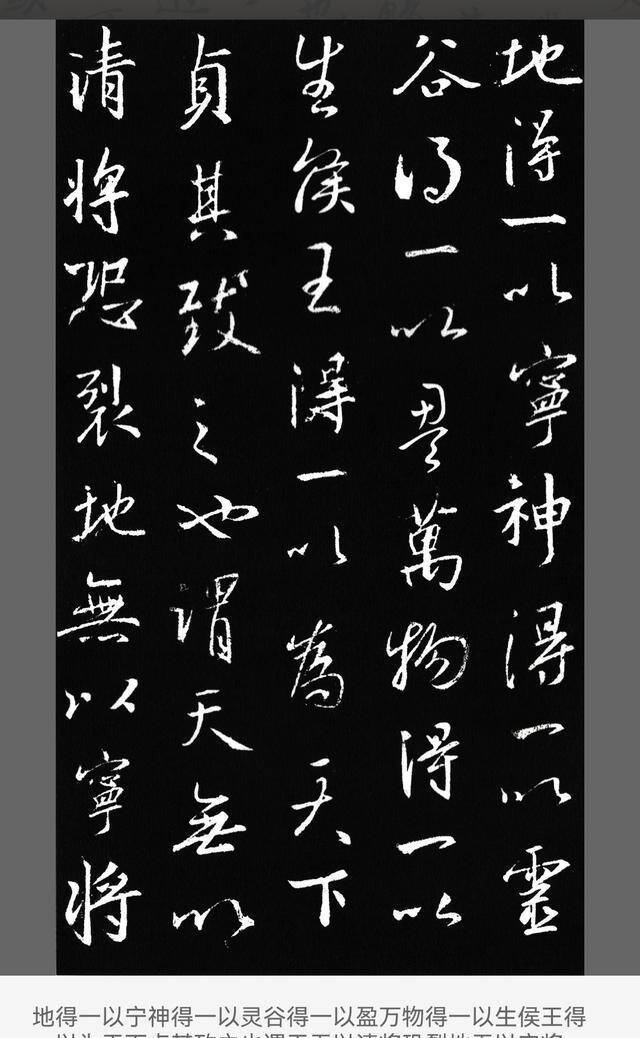 地得一以寧神得一以靈
谷得一以盈萬物得一以
生侯王得一以為天下
貞其致之也謂天無以
清將恐裂地無以寧將
地得一以宁神得一以灵谷得一以盈万物得一以生侯王得